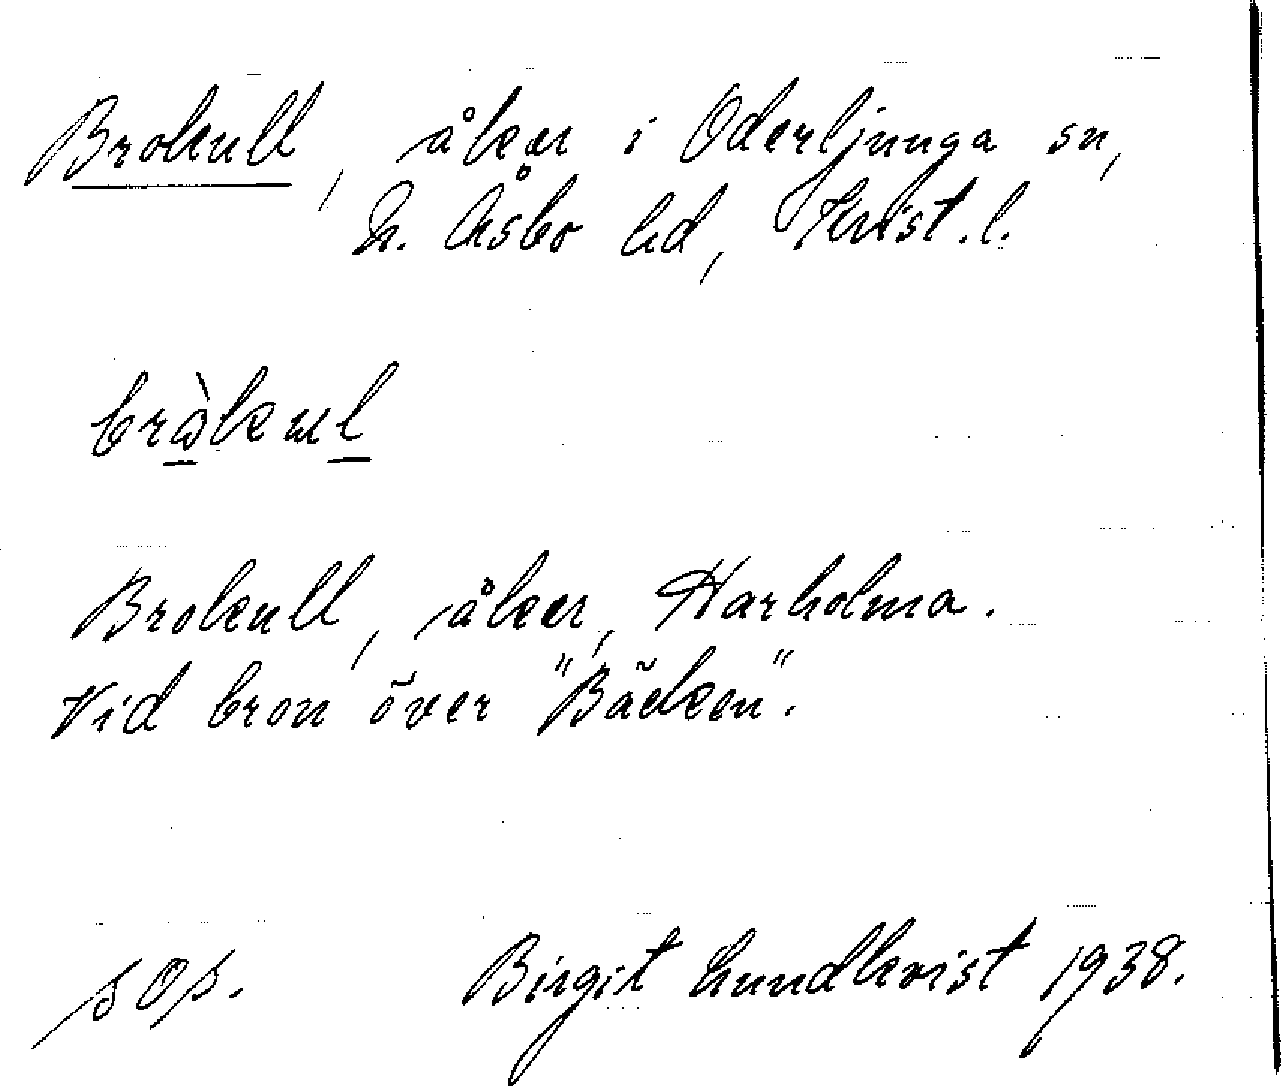 Brokull, åker i Oderljunga sn,
N. Åsbo hd, Krist. l.
bròkul
Brokull, åker, Harholma.
Vid bron över "Bäcken".
sos. Birgit Lundkvist 1938.